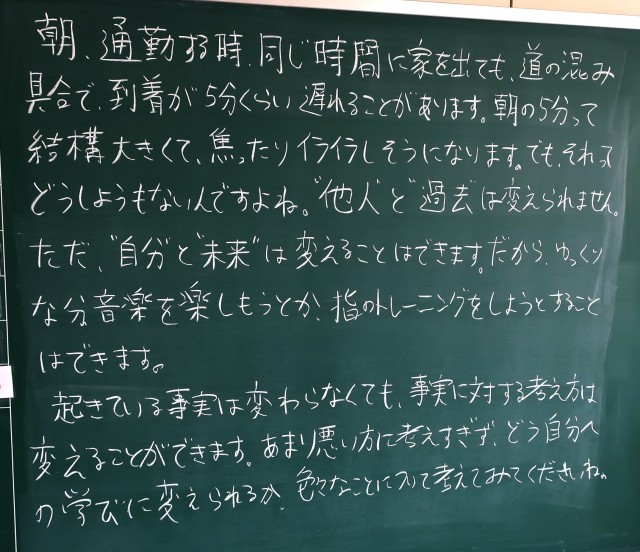 朝、通勤する時、同じ時間に家を出ても、道の混み
具合で、到着が5分くらい遅れることがあります。朝の5分って
結構大きくて、焦ったりイライラしそうになります。でも、それって
どうしようもないんですよね。"他人"と"過去"は変えられません。
ただ、"自分"と"未来"は変えることはできます。だから、ゆっくり
な分音楽を楽しもうとか、指のトレーニングをしようとすること
はできます。
起きている事実は変わらなくても、事実に対する考え方は
変えることができます。あまり悪い方に考えすぎず、どう自分へ
の学びに変えられるか、色々なことについて考えてみてくださいね。